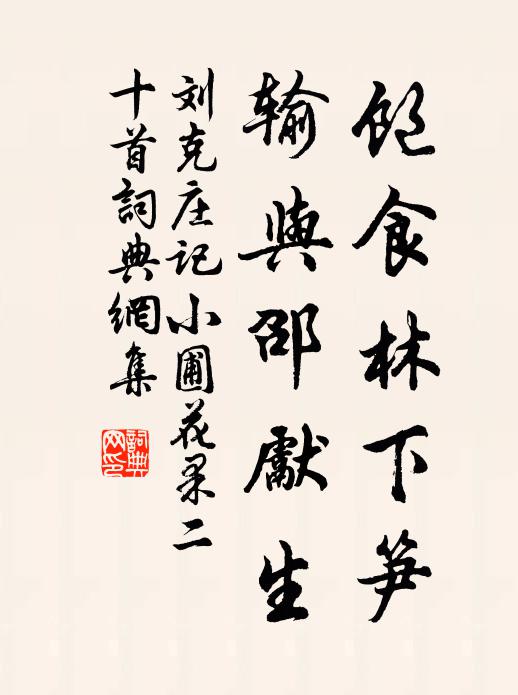 飽食林下笋
輸與邵獻生
刘克庄記小圃花果二
十首詞典網集
詞典网印